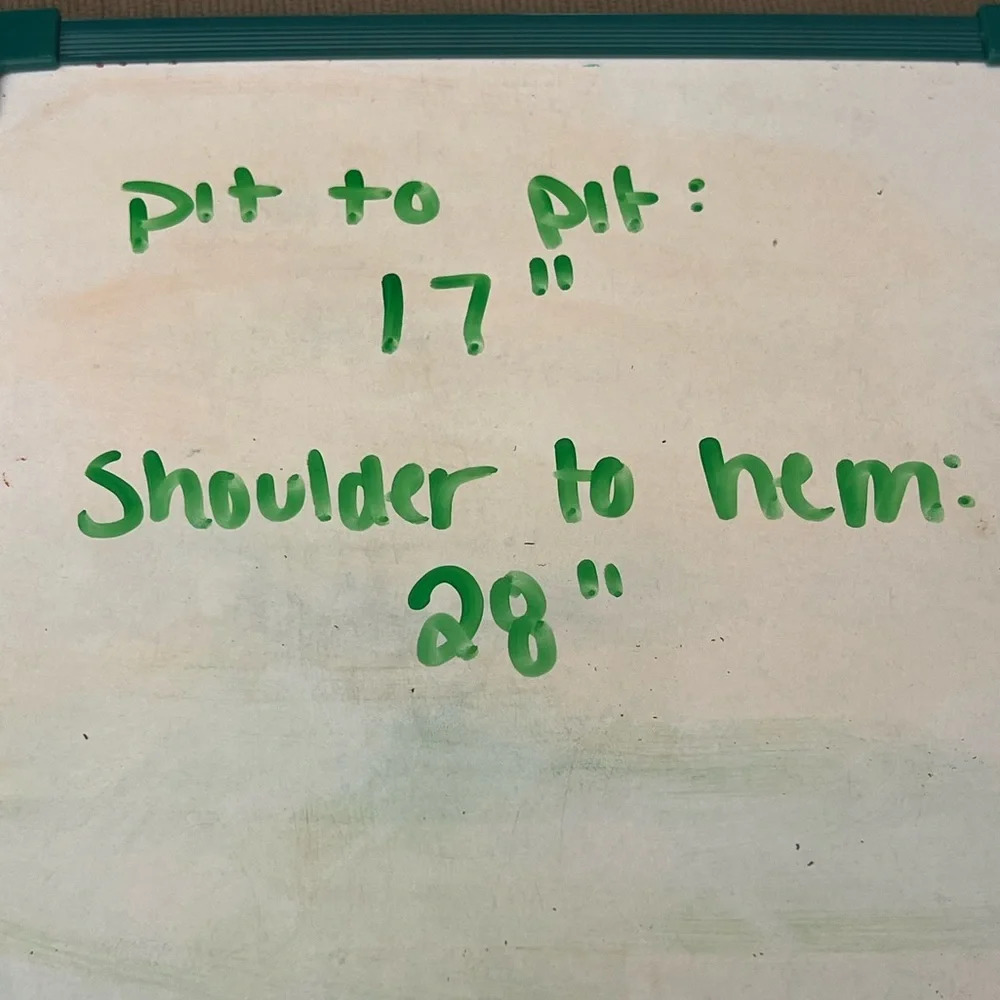 pit to pit:
17"
Shoulder to hem:
28"